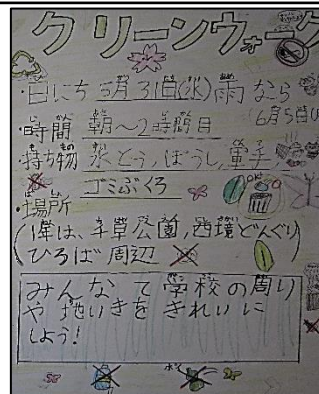 クリーンウォーク
・日にち 5月31日(水)雨なら
6月5日
・時間 朝〜2時間目
・持ち物 水とう,ぼうし,軍手,
ゴミぶくろ
・場所
(1年は、 公園,西境どんぐり
ひろば周辺
みんなで学校の周り
や地いきをきれいに
しよう!